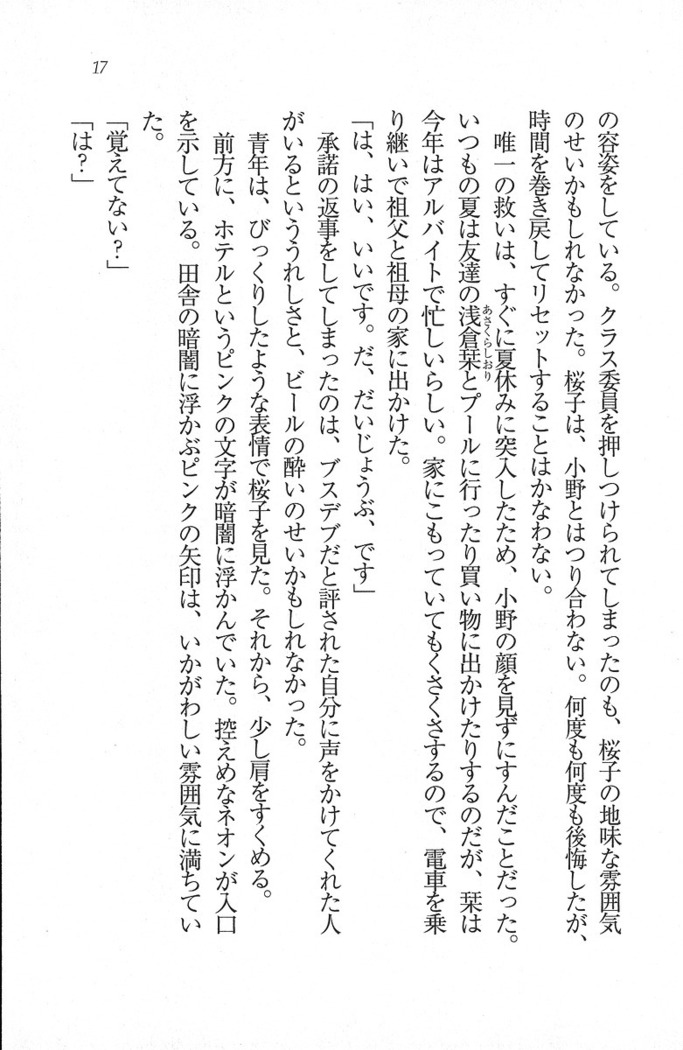 17
の容姿をしている。クラス委員を押しつけられてしまったのも、桜子の地味な雰囲気
のせいかもしれなかった。桜子は、小野とはつり合わない。何度も何度も後悔したが、
時間を巻き戻してリセットすることはかなわない。
唯一の救いは、すぐに夏休みに突入したため、小野の顔を見ずにすんだことだった。
いつもの夏は友達の浅倉栞とプールに行ったり買い物に出かけたりするのだが、栞は
あさくらしおり
今年はアルバイトで忙しいらしい。家にこもっていてもくさくさするので、電車を乗
り継いで祖父と祖母の家に出かけた。
「は、はい、いいです。だ、だいじょうぶ、です」
承諾の返事をしてしまったのは、ブスデブだと評された自分に声をかけてくれた人
がいるといううれしさと、ビールの酔いのせいかもしれなかった。
青年は、びっくりしたような表情で桜子を見た。それから、少し肩をすくめる。
前方に、ホテルというピンクの文字が暗闇に浮かんでいた。控えめなネオンが入口
を示している。田舎の暗闇に浮かぶピンクの矢印は、いかがわしい雰囲気に満ちてい
た。
「覚えてない?」
「は?」